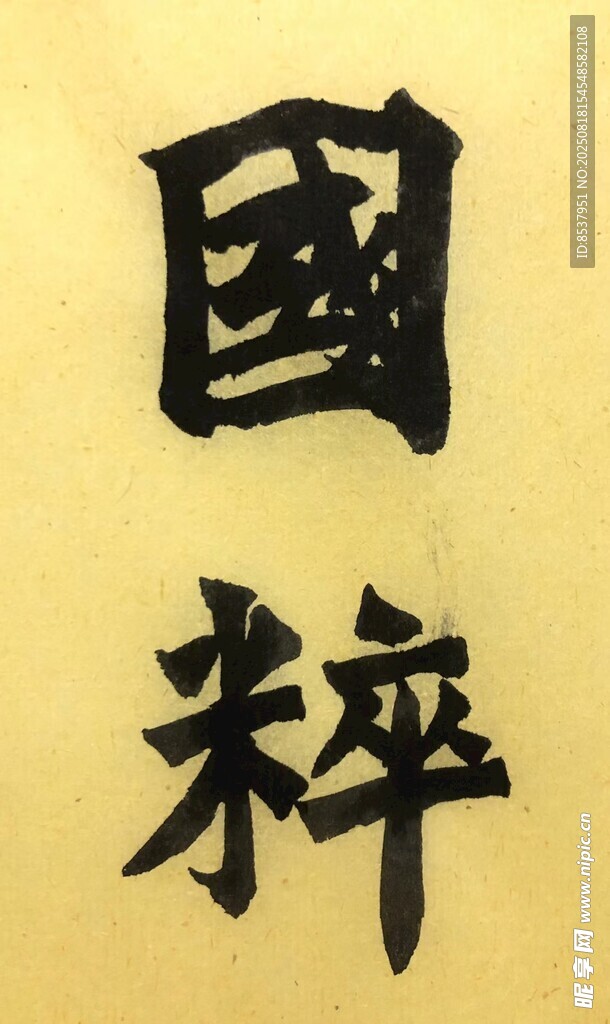 國粹
ID:8537951 NO:20250818154548582108
昵享网 www.nipic.cn